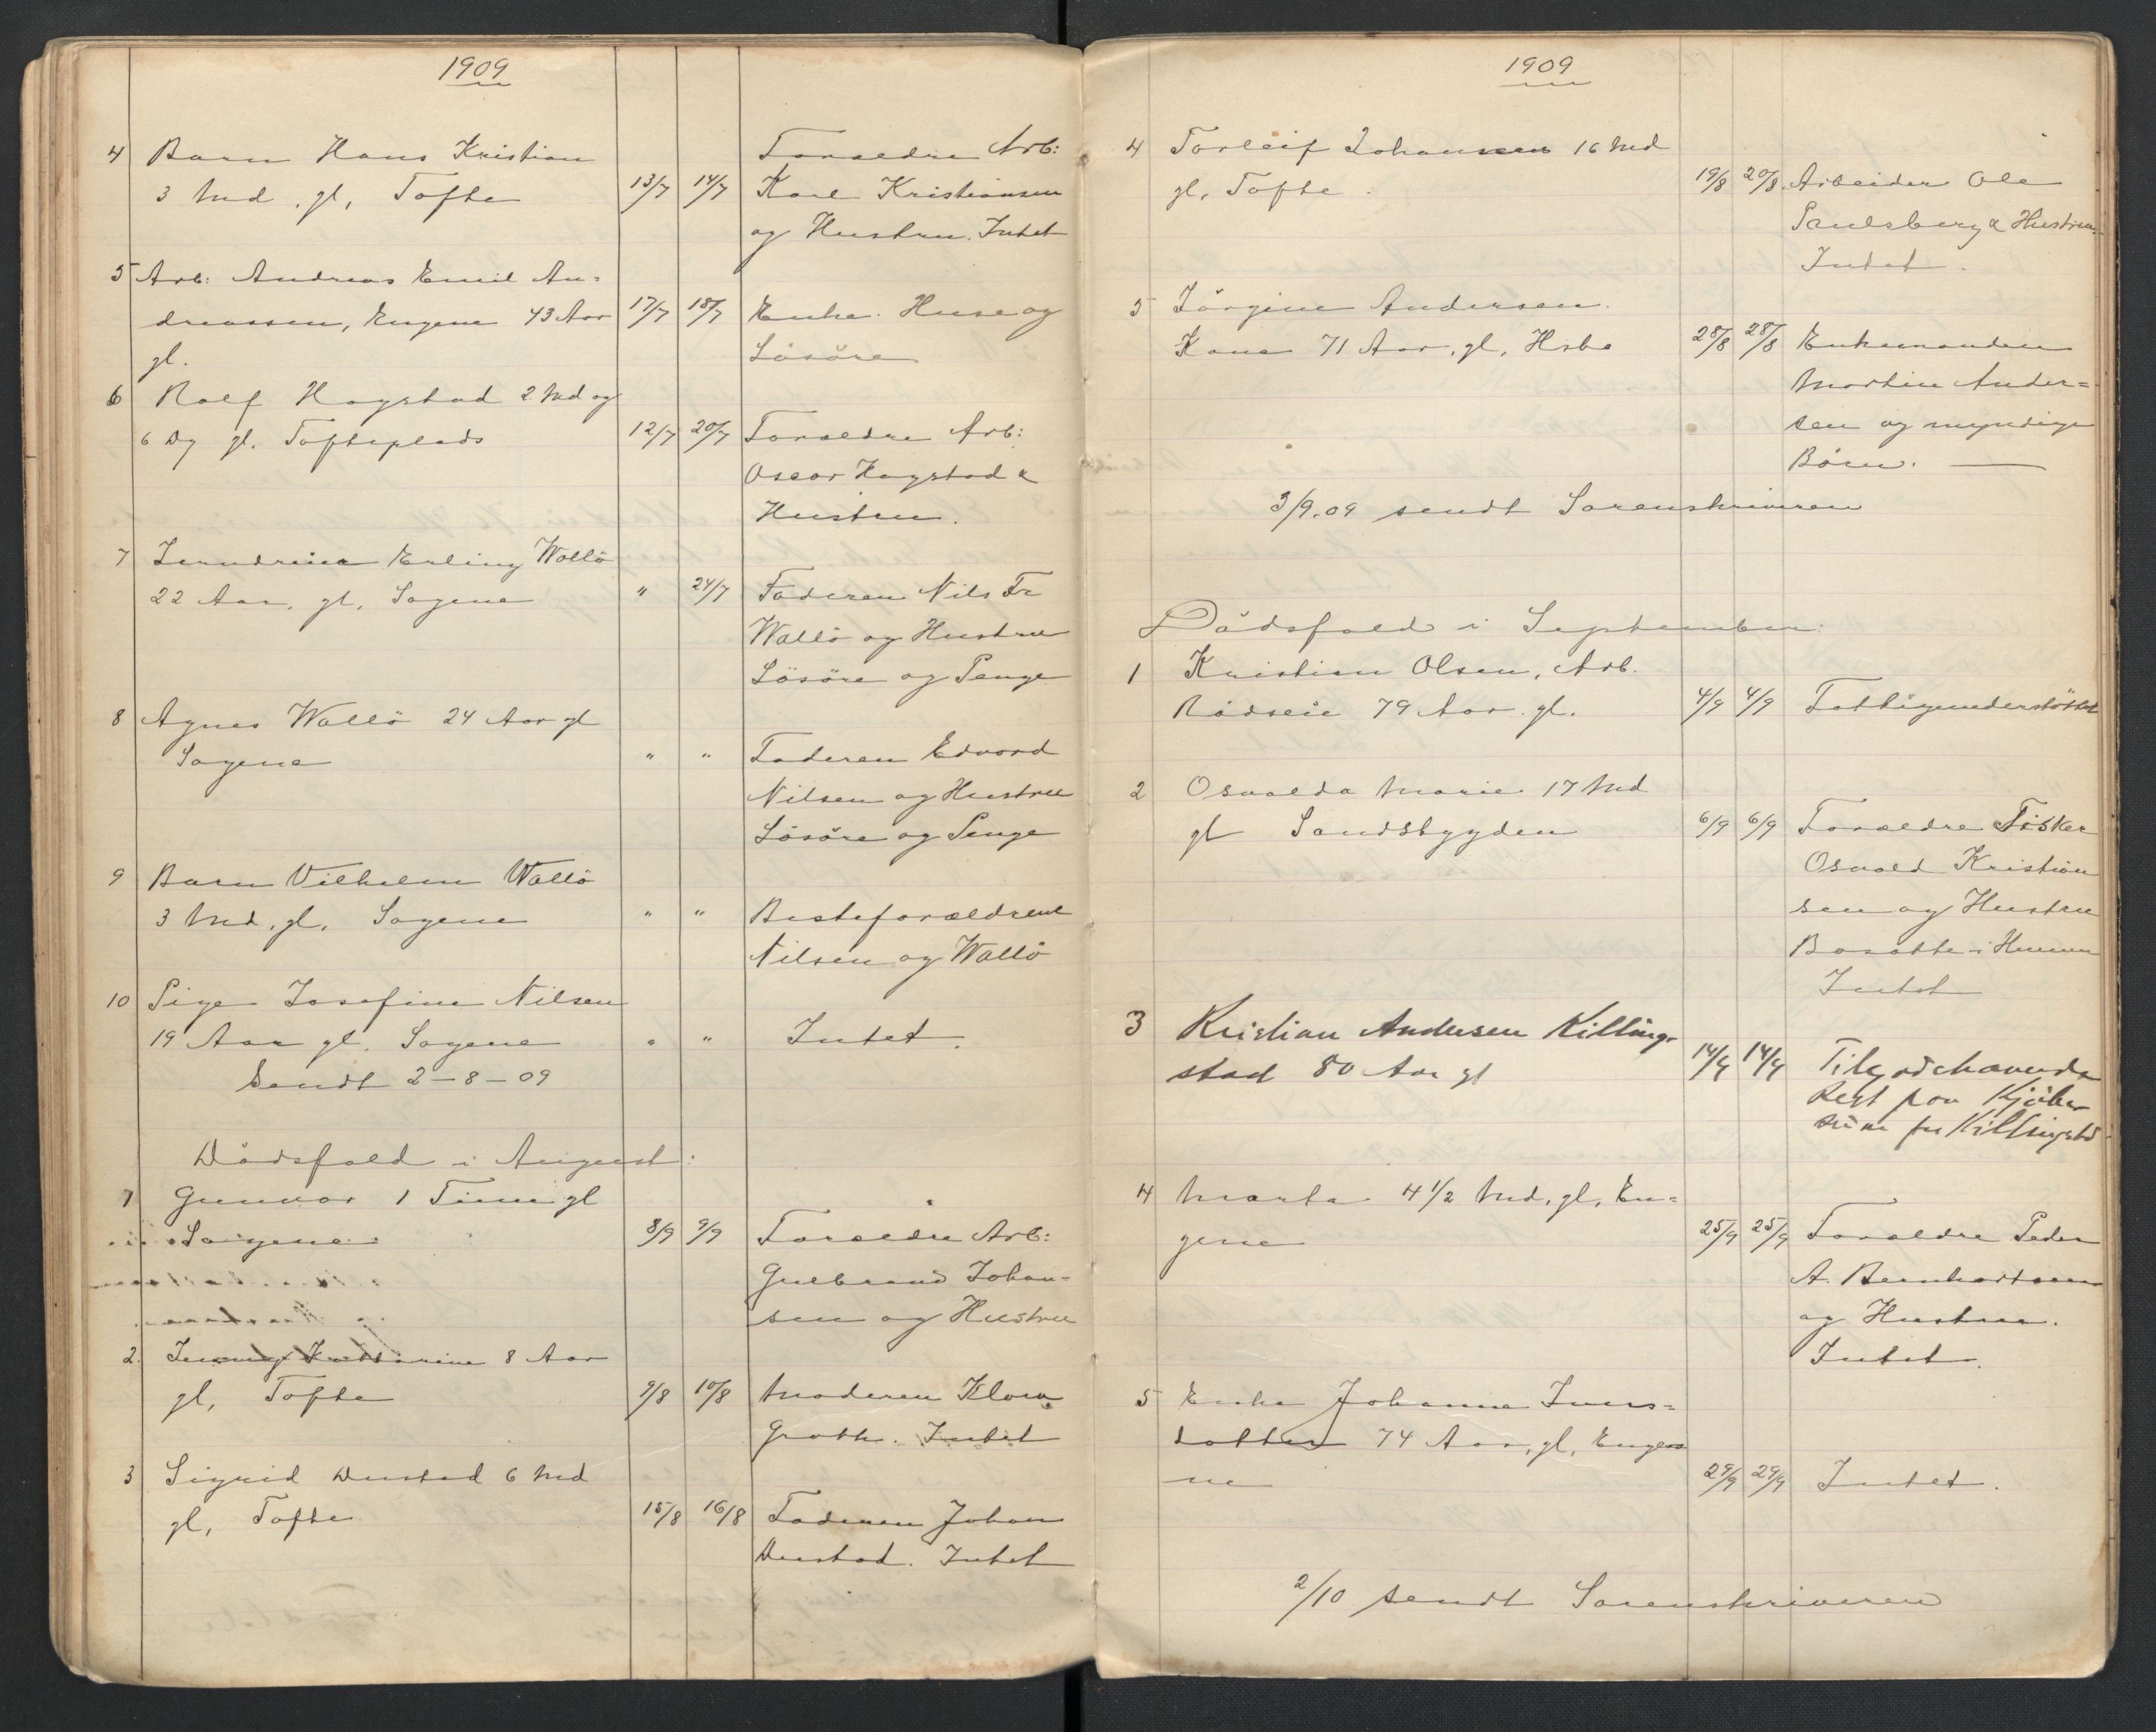 1909
4 Barn Hans Kristian
3 Md. gl, Tofte 13/7 14/7
Foraeldre Arb:
Karl Kristiansen
og Hustru. Intet
5 Arb: Andreas Emil An=
dreassen, Engene 43 Aar 17/7 18/7
gl.
Enke. Huse og
Lösöre
6 Rolf Hagstad 2 Md og
6 Dg gl. Tofteplads 12/7 20/7
Foraeldre Arb:
Oscar Hagstad &
Hustru.
7 Erling Wallö
22 Aar, gl, Sagene " 24/7
Faderen Nils Fr
Wallö og Hustru
Lösöre og Penge
8 Agnes Wallö 24 Aar gl
Sagene " "
Faderen Edvard
Nilsen og Hustru
Lösöre og Penge
9 Barn Vilhelm Wallö
3 Md, gl, Sagene " "
Besteforaeldrene
Nilsen og Wallö
10 Pige Josefine Nilsen
19 Aar gl, Sagene " " Intet.
Sendt 2-8-09
Dödsfald i August:
1 Gunvor 1 Time gl
Sagene 8/9 9/9
Foraeldre Arb:
Gulbrand Johan=
sen og Hustru
2. Jenny Katharine 8 Aar
gl, Tofte 9/8 10/8
Moderen Klara
Groth. Intet
3 Sigrid Dustad 6 Md
gl, Tofte 15/8 16/8
Faderen Johan
Dustad. Intet
1909
4 Torleif Johansen 16 Md
gl, Tofte. 19/8 20/8
Arbeider Ole
Paulsberg & Hustru.
Intet.
5 Jörgine Andersen.
Kone 71 Aar, gl, Hsbo 28/8 28/8
Enkemanden
Martin Ander=
sen og myndige
Börn. —
3/9.09 sendt Sorenskriveren
Dödsfald i September:
1 Kristian Olsen, Arb.
Rödseie 79 Aar. gl. 4/9 4/9 Fattigunderstöttet
2 Osvalda Marie 17 Md
gl Sandsbygden 6/9 6/9
Foraeldre Fisker
Osvald Kristian
sen og Hustru
Bosatte i Hurum
Intet
3 Kristian Andersen Killing-
stad 80 Aar gl 14/9 14/9
Tilgodehavende
Rest paa Kjöbe
sum for Killingstd
4 Marta 4 1/2 Md, gl, En=
gene 25/9 25/9
Foraeldre Peder
A. Bernhartsen
og Hustru.
Intet.
5 Enke Johanne Ivers=
datter 74 Aar, gl, Enge
ne 29/9 29/9 Intet.
2/10 sendt Sorenskriveren